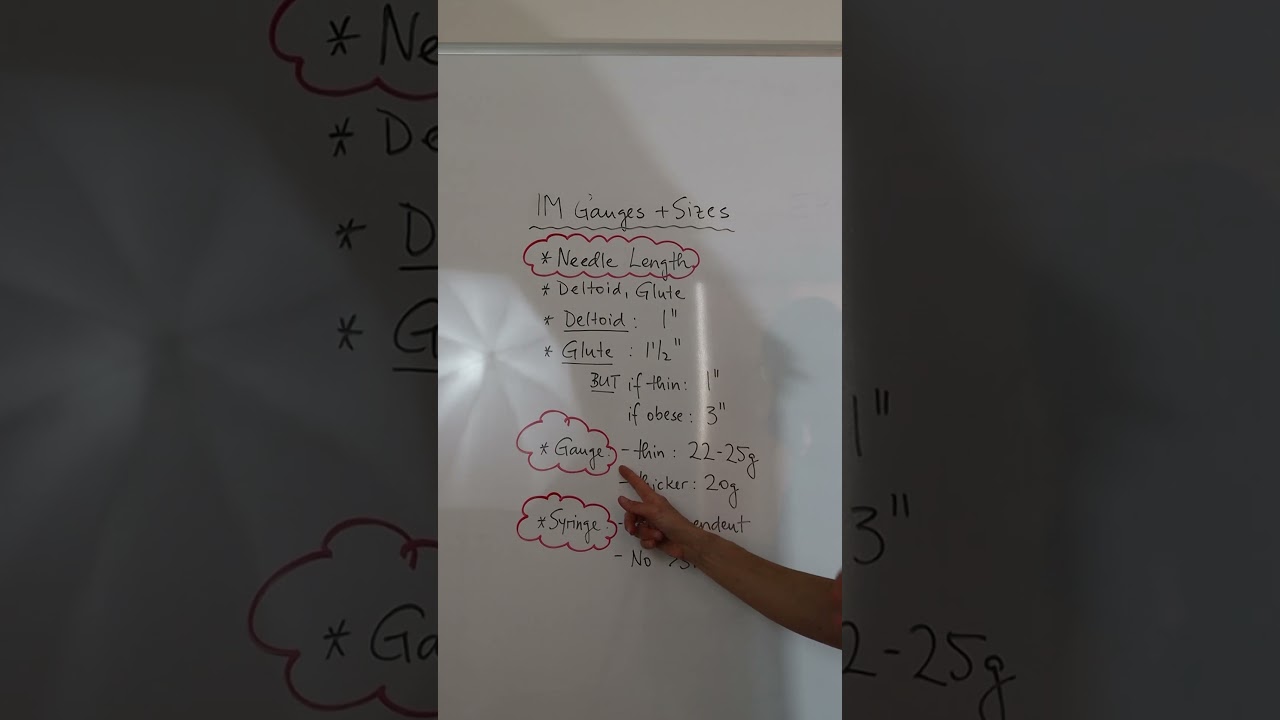 IM Gauges + Sizes
* Needle Length
* Deltoid, Glute
* Deltoid : 1"
* Glute : 1 1/2"
BUT if thin: 1"
if obese: 3"
* Gauge: - thin : 22-25g
- thicker: 20g
* Syringe: -
- No
* Ne
* De
* D
* G
* Ga
1"
3"
2-25g